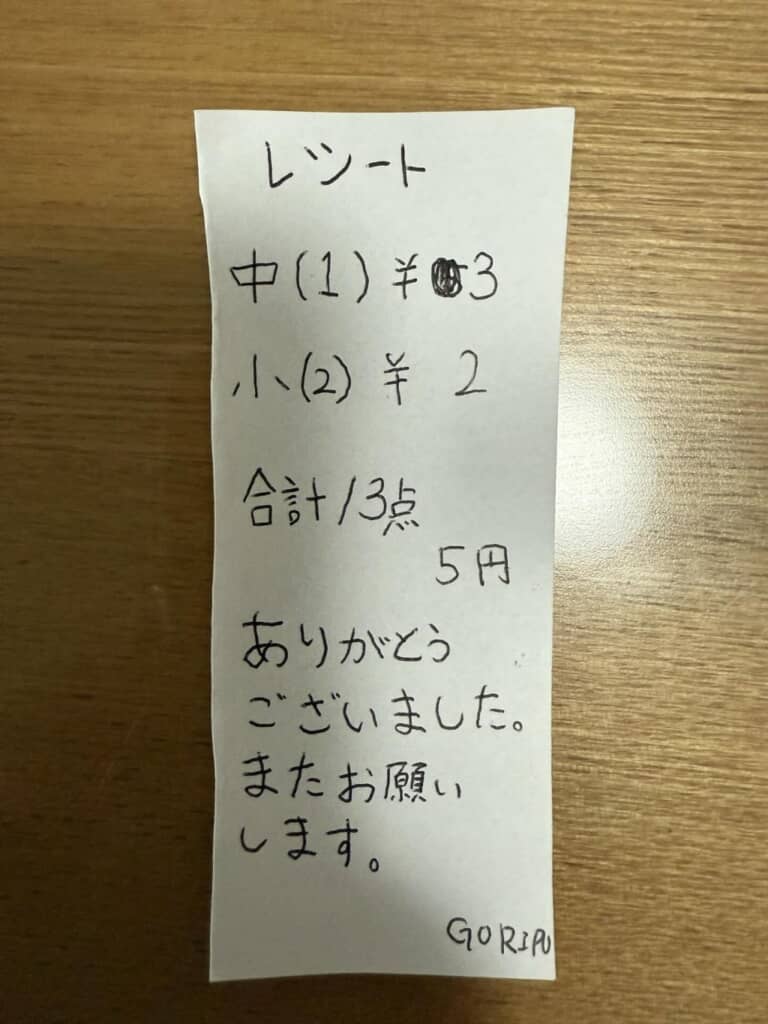 レシート
中(1) ¥ 3
小(2) ¥ 2
合計/3点
5円
ありがとう
ございました。
またお願い
します。
GORIPU